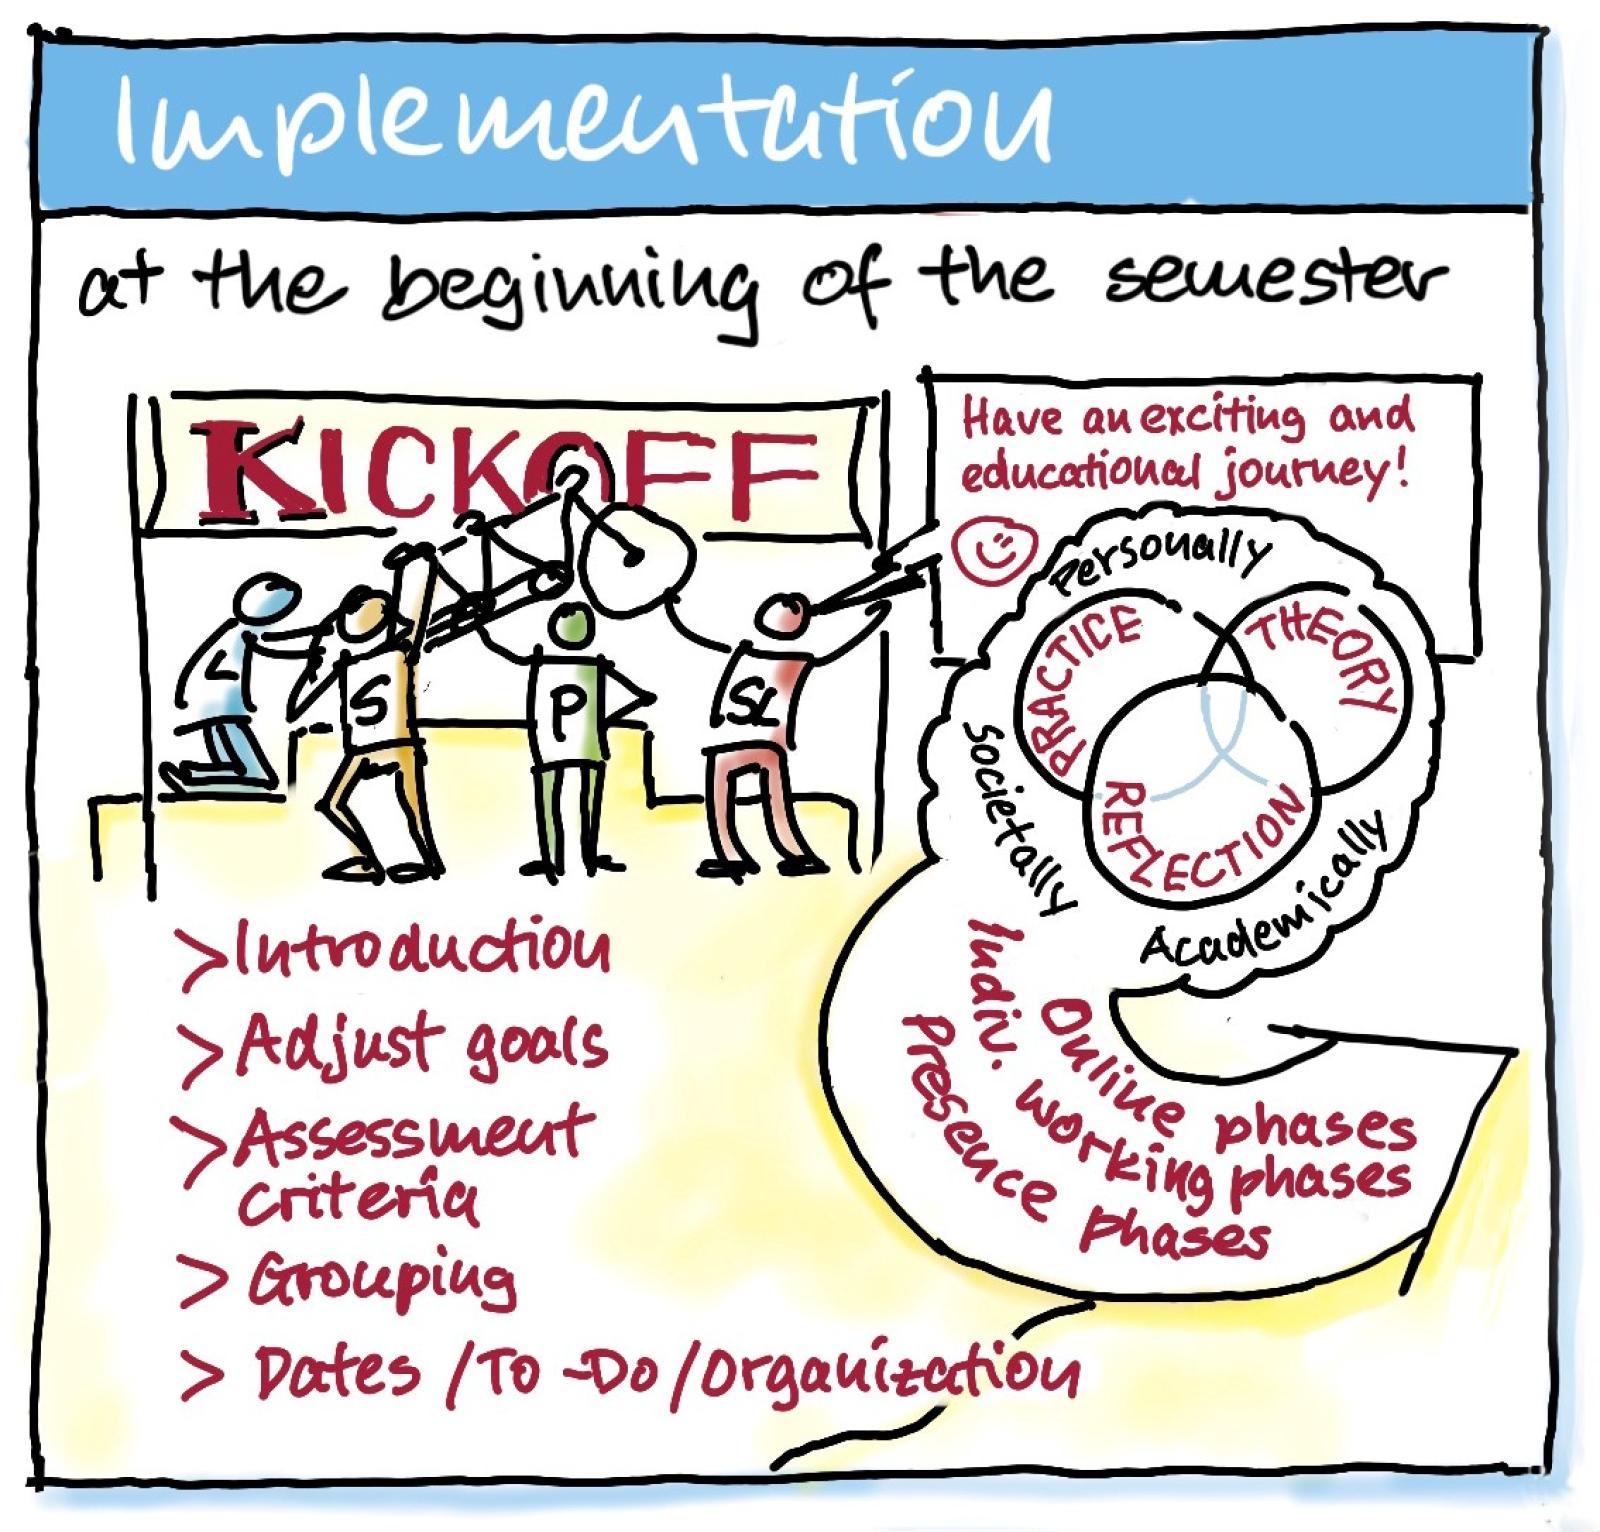 Implementation
at the beginning of the semester
KICKOFF
Have an exciting and
educational journey!
L
S
P
SL
Personally
Societally
Academically
PRACTICE
THEORY
REFLECTION
Online phases
Indiv. working phases
Presence phases
> Introduction
> Adjust goals
> Assessment
criteria
> Grouping
> Dates / To-Do / Organization